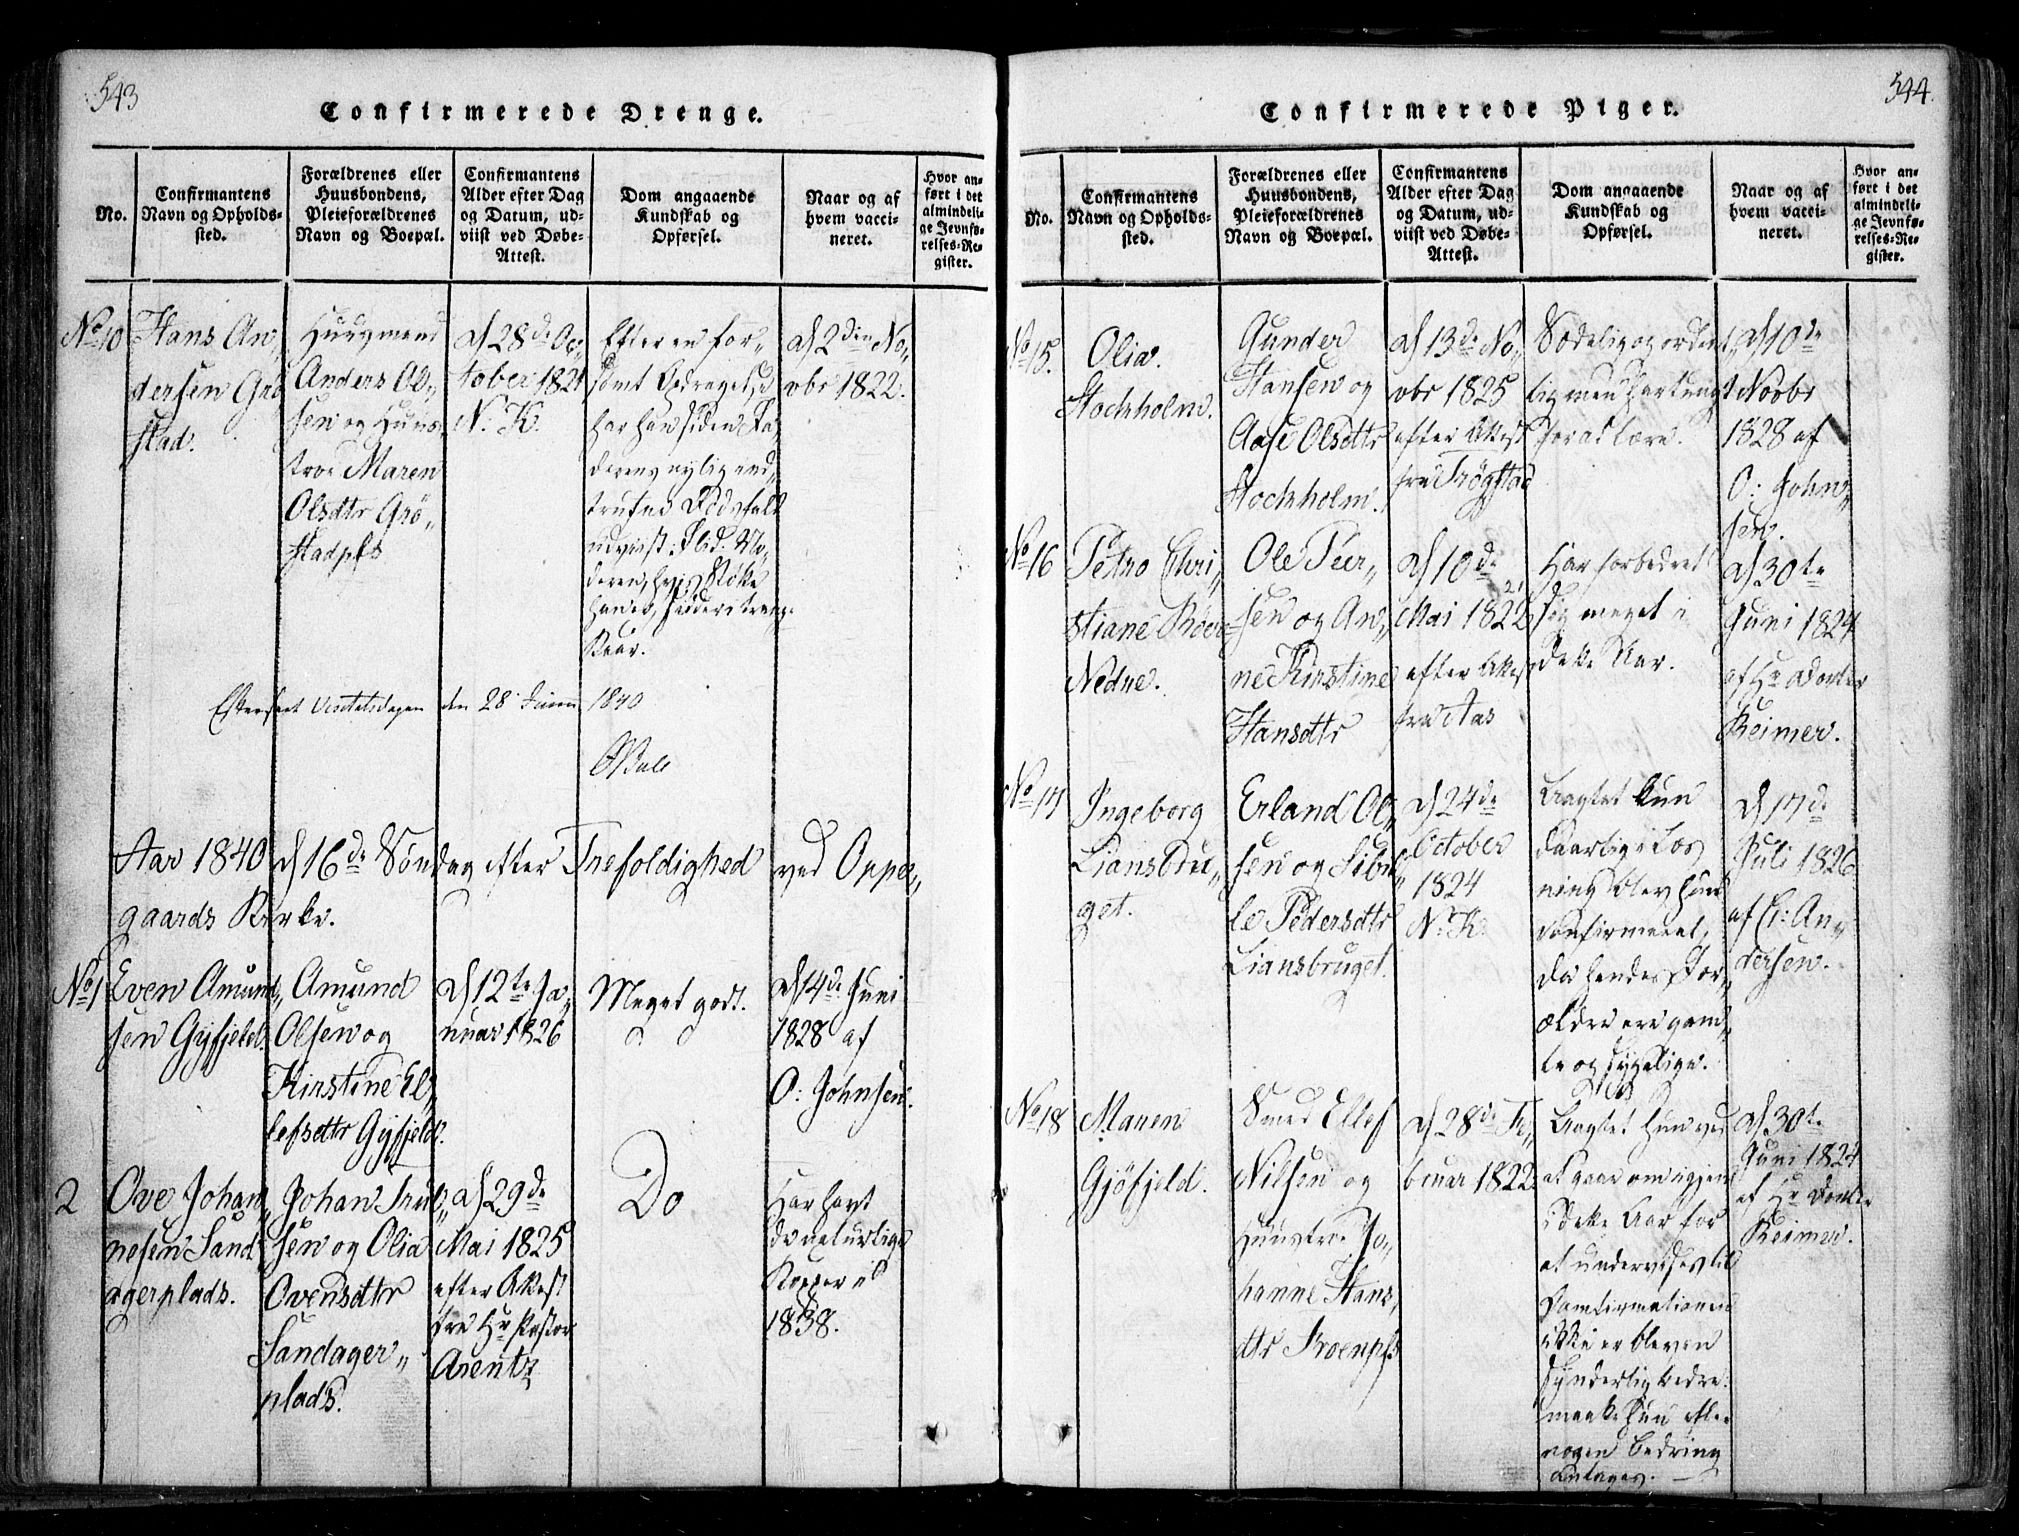 543
Confirmerede Drenge.
No.
Confirmantens
Navn og Opholds-
sted.
Forældrenes eller
Huusbondens,
Pleieforældrenes
Navn og Boepæl.
Confirmantens
Alder efter Dag
og Datum, ud-
viist ved Døbe-
Attest.
Dom angaaende
Kundskab og
Opførsel.
Naar og af
hvem vacci-
neret.
Hvor an-
ført i det
almindeli-
ge Jevnfø-
relses-Re-
gister.
No 10
Hans An„
dersen Grö
stad.
Huusmand
Anders Ol„
sen og Huus„
troe Maren
Olsdtr Grö„
stadpls
d 28de Oc„
tober 1821
N. K.
Efter en for„
sömt Opdragelse
har han siden Fa„
derens nylig ind„
trufne Dödsfald
udviist Flid. Mo„
deren, hvis Støtte
han er, sidder i trange
Kaar.
d 2den No„
vbr 1822.
Efterseet Visitatsdagen den 28 Juni 1840
Aar 1840 d 16de Söndag efter Trefoldighed ved Oppe„
gaards Kirke.
No 1
Even Amund„
sen Gjfjeld.
Amund
Olsen og
Kirstine El„
lefsdtr Gjfjeld.
d 12te Ja„
nuar 1826
Meget godt.
d 14de Juni
1828 af
O: Johnsen.
2
Ove Johan„
nesen Sand„
agerplads.
Johan Trul„
sen og Olia
Ovensdtr
Sandager„
plads.
d 29de
Mai 1825
efter Attest
fra Hr Pastor
Arentz
Do
Har havt
de naturlige
Kopper i
1838.
544.
Confirmerede Piger.
No.
Confirmantens
Navn og Opholds-
sted.
Forældrenes eller
Huusbondens,
Pleieforældrenes
Navn og Boepæl.
Confirmantens
Alder efter Dag
og Datum, ud-
viist ved Døbe-
Attest.
Dom angaaende
Kundskab og
Opførsel.
Naar og af
hvem vacci-
neret.
Hvor an-
ført i det
almindeli-
ge Jevnfø-
relses-Re-
gister.
No 15.
Olia
Stockholm.
Gunder
Hansen og
Aase Olsdtr
Stockholm.
d 13de No„
vbr 1825
efter Attest
fra Trøgstad
Sædelig og ordent
lig men har tungt
for at lære.
d 10de
Novbr
1828 af
O: John„
sen.
No 16
Petro Chri„
stiane
Nedre.
Ole Peer„
sen og An„
ne Kirstine
Hansdtr
d 10de
21
Mai 1822
efter Attest
fra Aas
Har forbedret
sig meget i
dette Aar.
d 30te
Juni 1824
af Hr Doctor
Reimer.
No 17
Ingeborg
Liansbru„
get.
Erland Ol„
sen og Sibil„
le Pedersdtr
Liansbruget.
d 24de
October
1824
N. K.
Uagtet kun
daarlig i Læs
ning blev hun
confirmeret,
da hendes For„
ældre ere gam„
le og sygelige.
d 17de
Juli 1826
af C: An„
dersen.
No 18
Maren
Gjöfjeld.
Smed Ellef
Nilsen og
Huustroe Jo„
hanne Hans„
dtr
d 28de Fe„
bruar 1822
Uagtet hun ved
at gaae om igjen
i dette Aar for
at undervises til
Confirmationen
ikke er bleven
synderlig bedre,
maatte hun efter
nogen Bedring
antages. —
d 30te
Juni 1824
af Hr Doctor
Reimer.